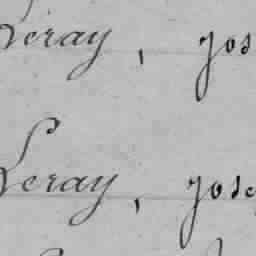 Leray, Jos
Leray, Jose